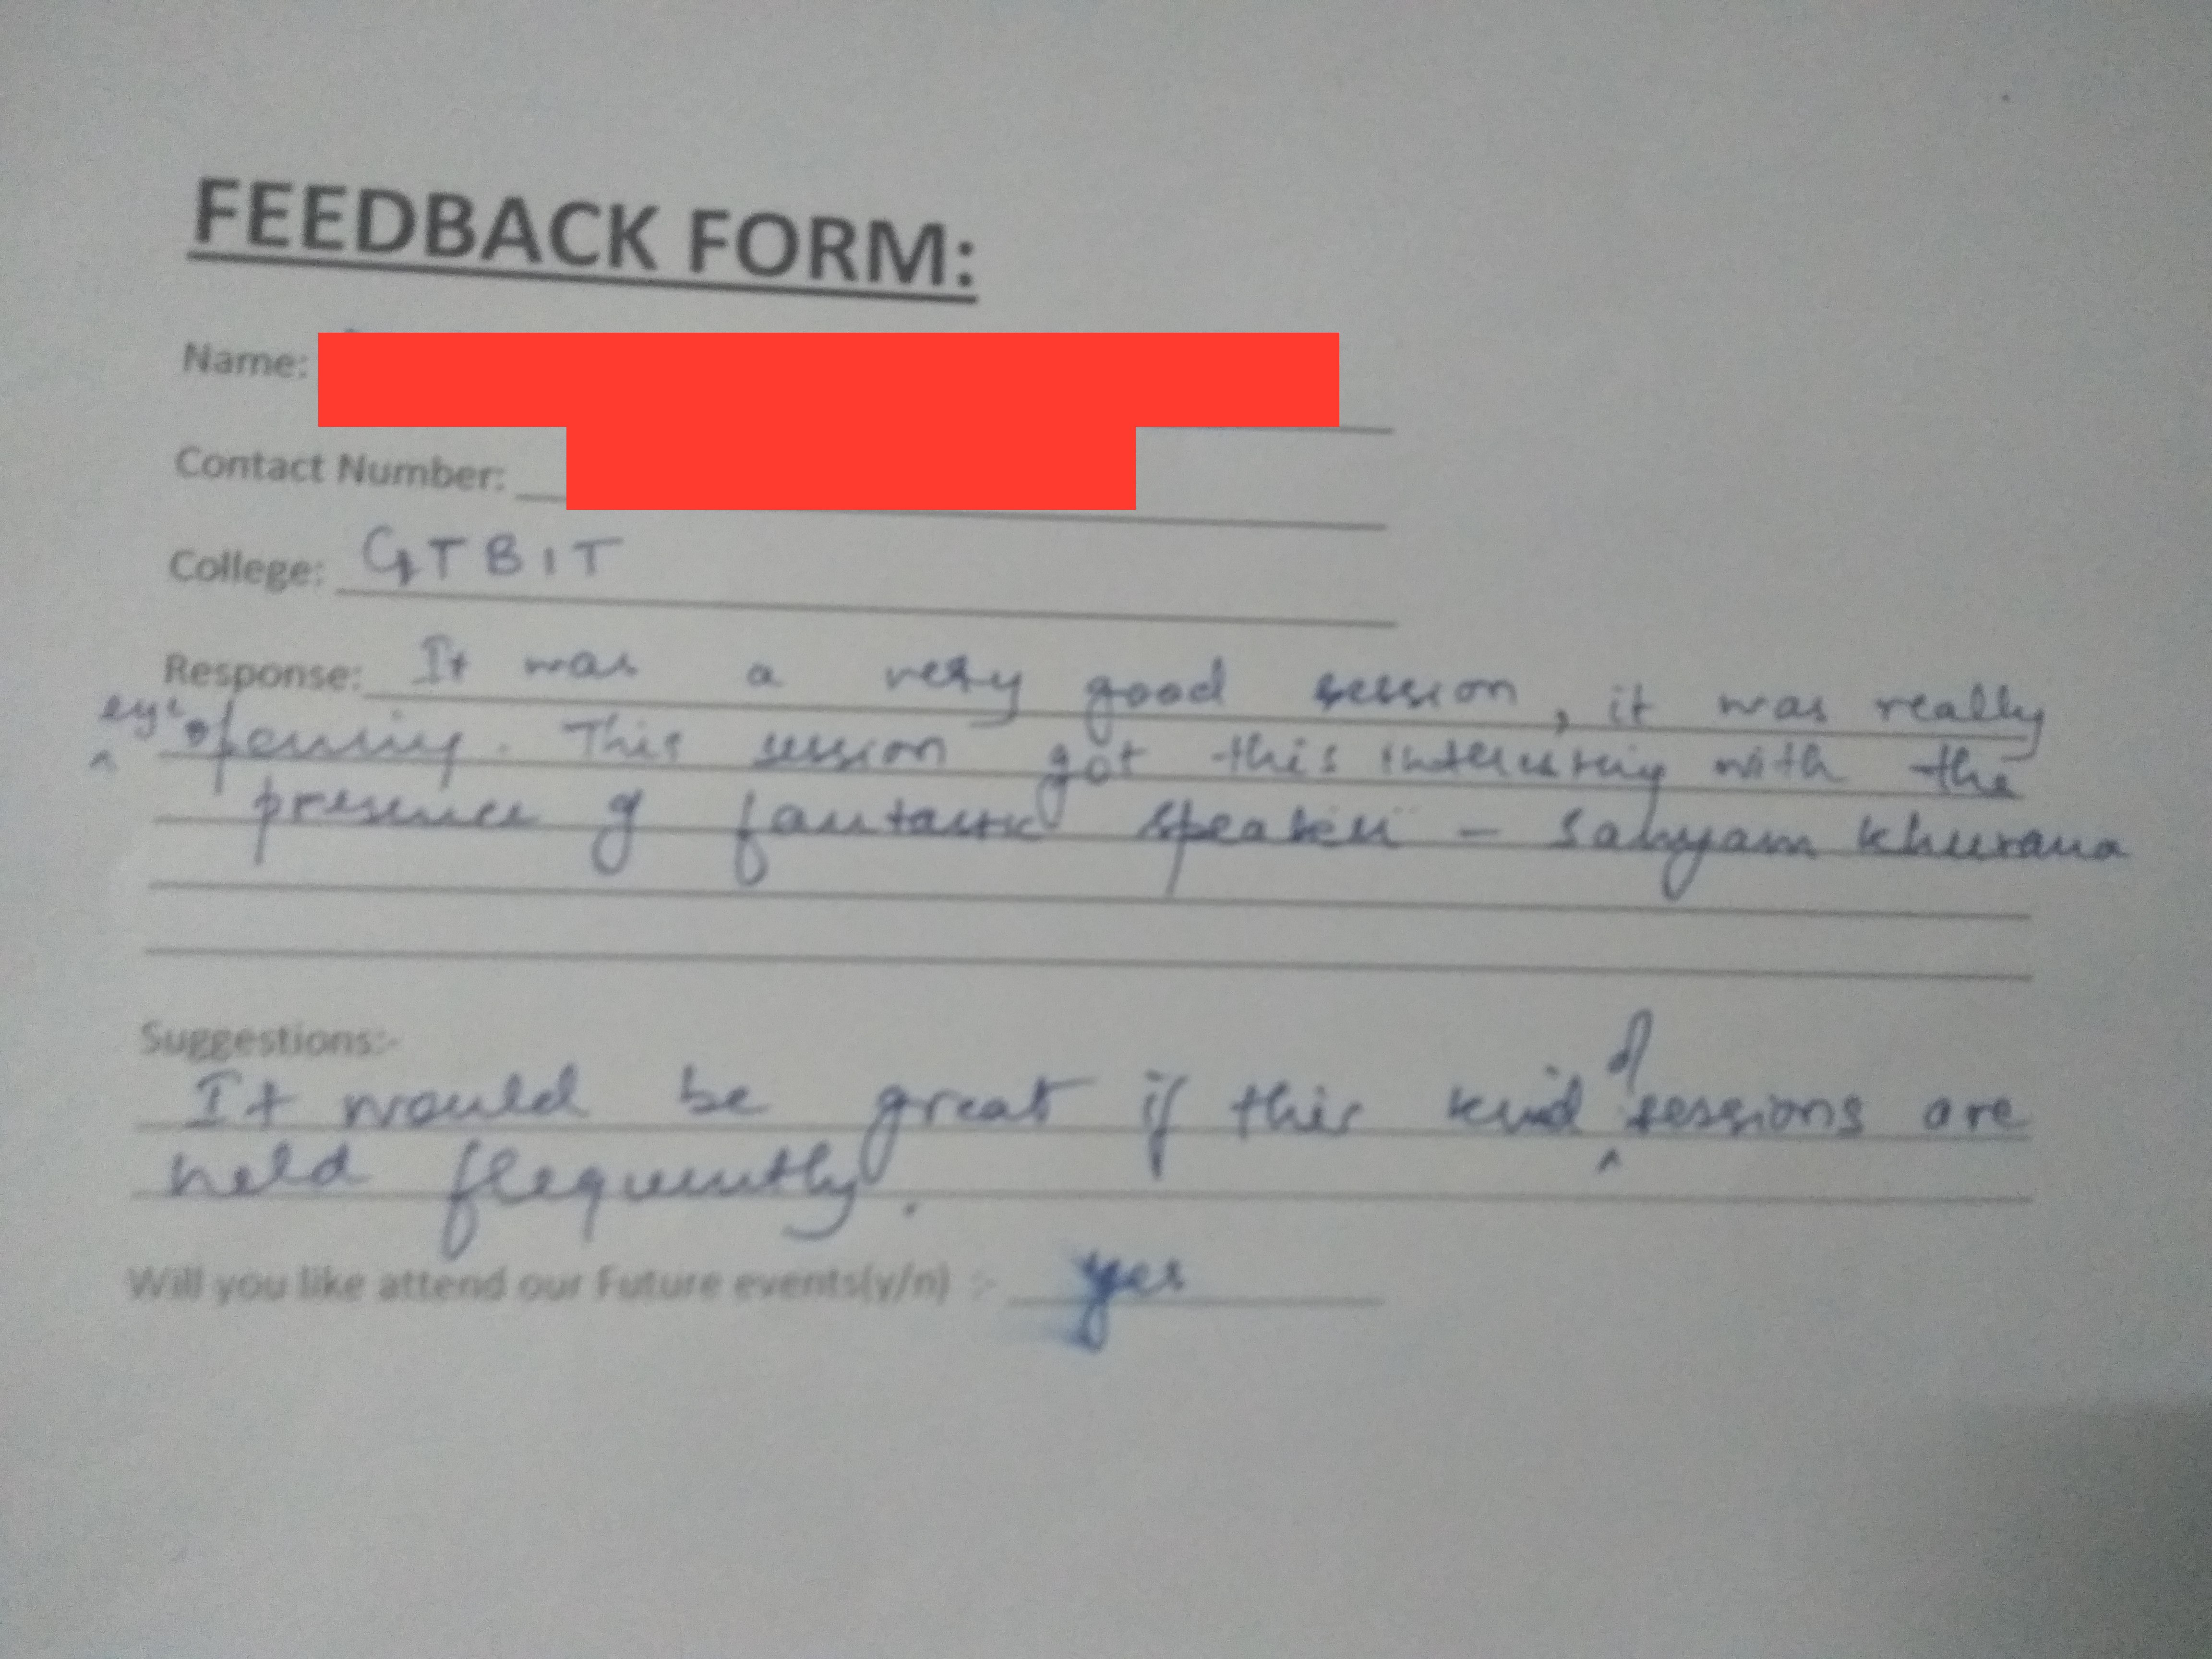 FEEDBACK FORM:
Name:
Contact Number:
College: GTBIT
Response: It was a very good session, it was really
eye opening. This session got this interesting with the
presence of fantastic speaker - Sahyam Khurana
Suggestions:-
It would be great if this kind of sessions are
held frequently.
Will you like attend our Future events(y/n) :- yes